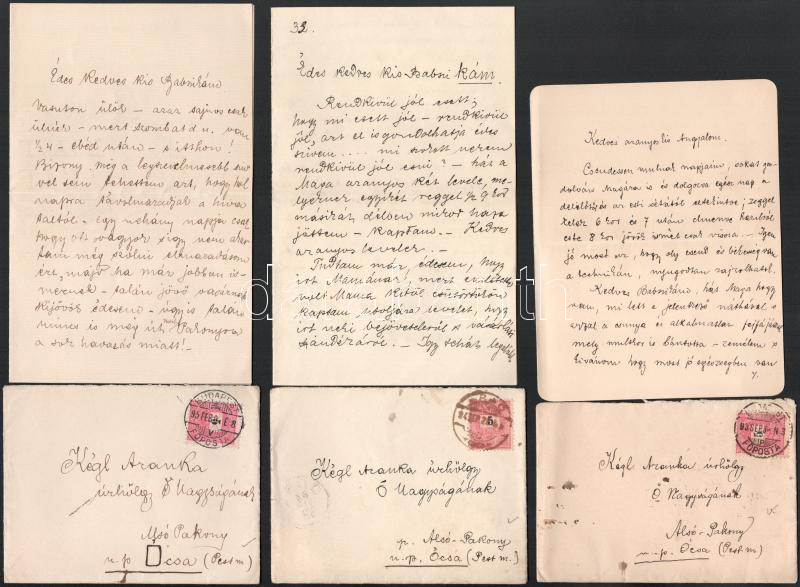 Édes Kedves kis Babszikám
Vasuton ülök – azaz sajnos csak
ültem – mert szombat d. u. van
1/24 – ebéd után – s itthon!
Bizony még a legszívelmesebb
vel sem tehettem azt, hogy
napra távolmaradjak a hiva
taltól – egy néhány napja csak
hogy itt vagyok s így nem akar
tam még szólni elmaradásom
ért, majd ha már jobban is-
mernek – talán jövő vasárnap
kijövök édesem – ugyis talán
nincs is még út Pakonyra
a sok havazás miatt! –
32.
Édes kedves kis Babszi kám.
Rendkivül jól esett,
hogy mi esett jól – rendkivül
jól, azt el is gondolhatja édes
szivem .... mi szokott nekem
rendkivül jól esni? – hát a
Maga aranyos két levele, me-
lyeknek egyikét reggel 1/2 9 kor
másikát délben mikor haza
jöttem – kaptam. – Kedves
aranyos levelek. –
Tudtam már, édesem, hogy
irt Mamának, mert
volt Manca kitől csütörtökön
kaptam utoljára levelet, hogy
irt neki bejöveteléről s
szándékáról. – Igy tehát
Kedves aranyos kis Angyalom.
Csendesen mulnak napjaim, sokat gon-
dolván Magára is és dolgozva egész nap a
délelőtti és az esti sétától eltekintve; reggel
kelek 6 kor és 7 után elmenve hazulról
este 8 kor jövök ismét csak vissza. – Igen
jó most az, hogy oly csend és békesség van
a technikán, nyugodtan rajzolhatok.
Kedves Babszikám, hát Maga hogy
van, mi lett a jelentkező náthával s
azzal a csunya és alkalmatlan fejfájással
mely multkor is bántotta – remélem s
kivánom hogy most jó egészségben van
BUDAPEST
95 FEB
FŐPOSTA
Kégl Aranka
úrhölgy Ő Nagyságának
Alsó Pakony
u. p. Ócsa (Pest m)
Kégl Aranka úrhölgy
Ő Nagyságának
p. Alsó-Pakony
u. p. Ócsa (Pest m.)
FŐPOSTA
Kégl Aranka úrhölgy
Ő Nagyságának
Alsó-Pakony
u. p. Ócsa (Pest m)